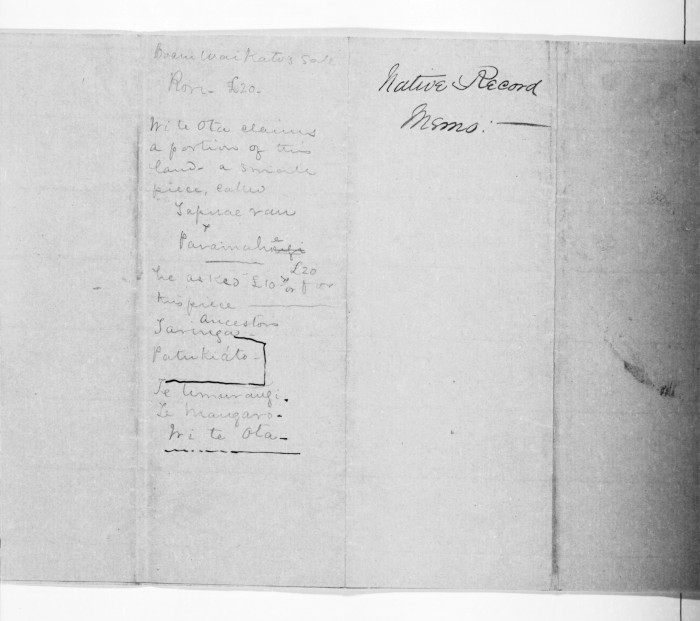 Waikato's Sale
£20.
Wi te Ota claims
a portion of this
land - a small
piece, called
Tapuae rau
he asked £10 or £20 for
this piece
Ancestors
Taringa -
Patukiato -
Te Umurangi.
Te Mangaro -
Wi te Ota -
Native Record
Memo: -